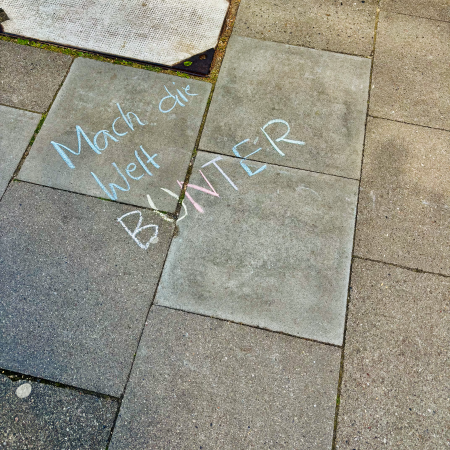 Mach die
Welt
BUNTER